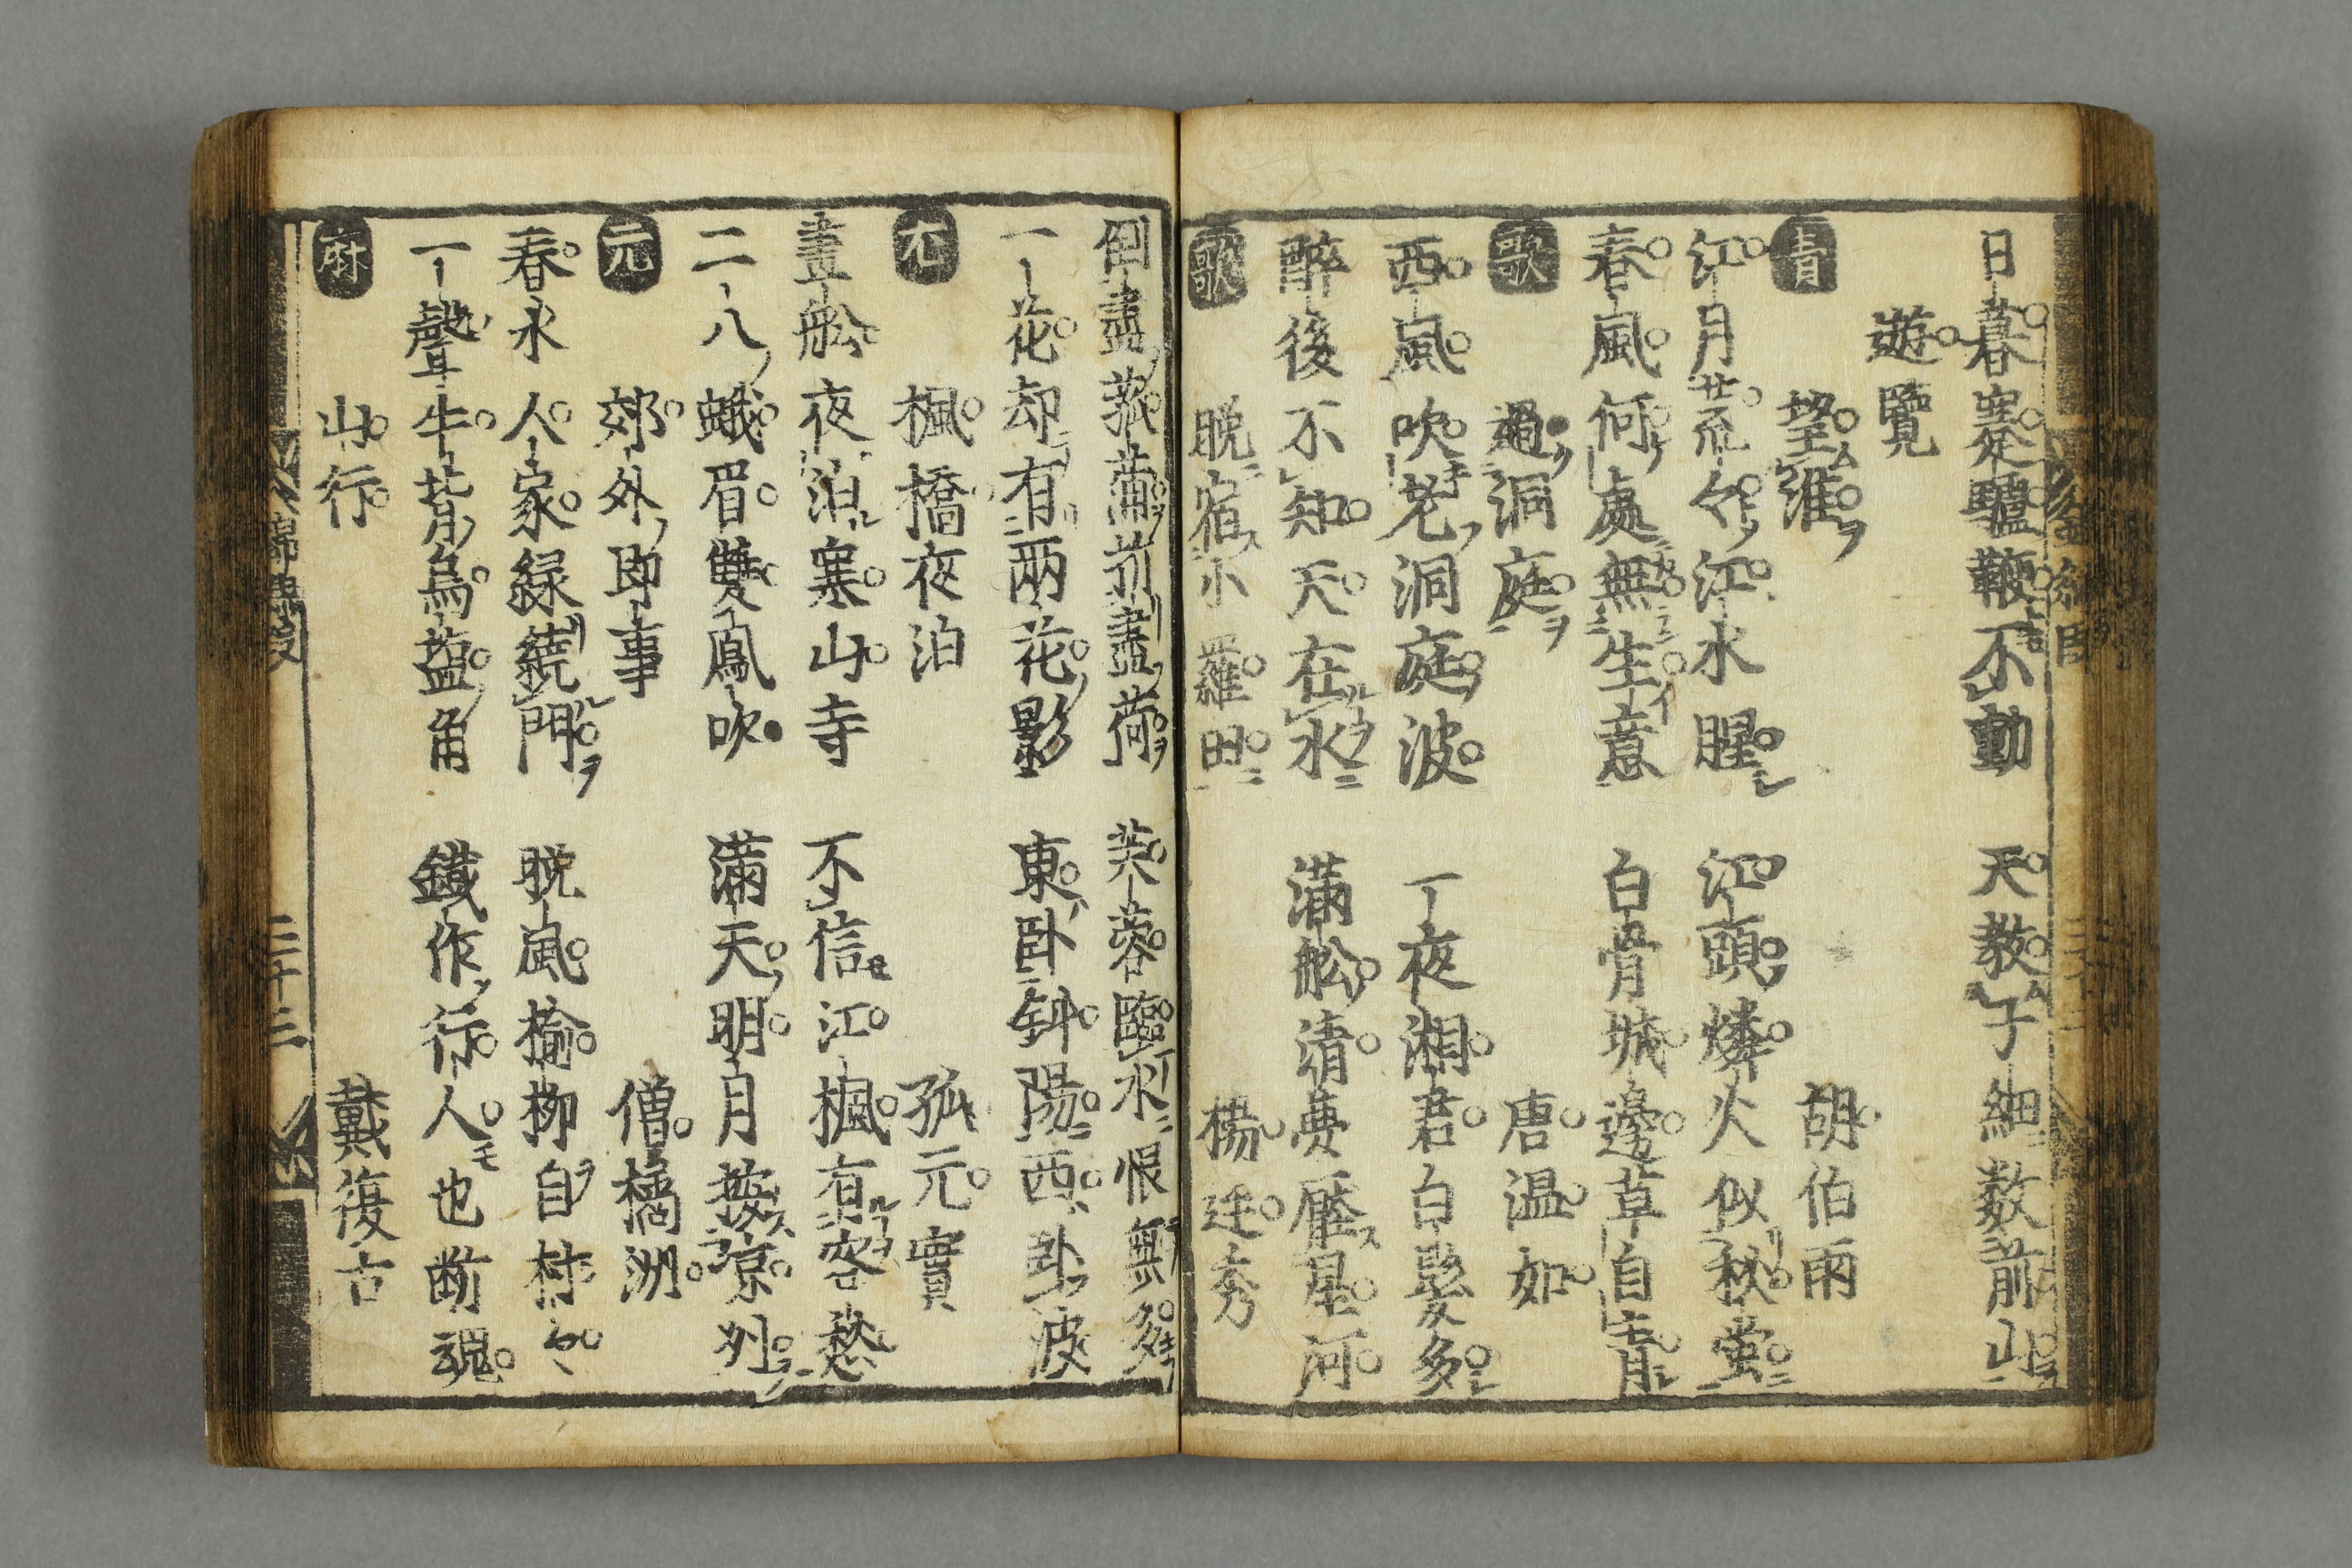 日暮蹇驢鞭不動　天教子細数前山
遊覽
青　望淮　胡伯雨
江月荒凉江水腥　江頭燐火似秋螢
春風何處無生意　白骨城邊草自青
歌　過洞庭　唐温如
西風吹老洞庭波　一夜湘君白髮多
醉後不知天在水　滿舩清夢壓星河
歌　晩宿小羅田　楊廷秀
倒盡菰蒲折盡荷　芙蓉臨水恨無多
一花却有兩花影　東卧斜陽西卧波
尤　楓橋夜泊　孤元實
畫舩夜泊寒山寺　不信江楓有客愁
二八蛾眉雙鳳吹　滿天明月按凉州
元　郊外即事　僧橘洲
春水人家緑繞門　晩風榆柳自村々
一聲牛背烏鹽角　鐵作行人也断魂
麻　山行　戴復古
錦繡段　三十三